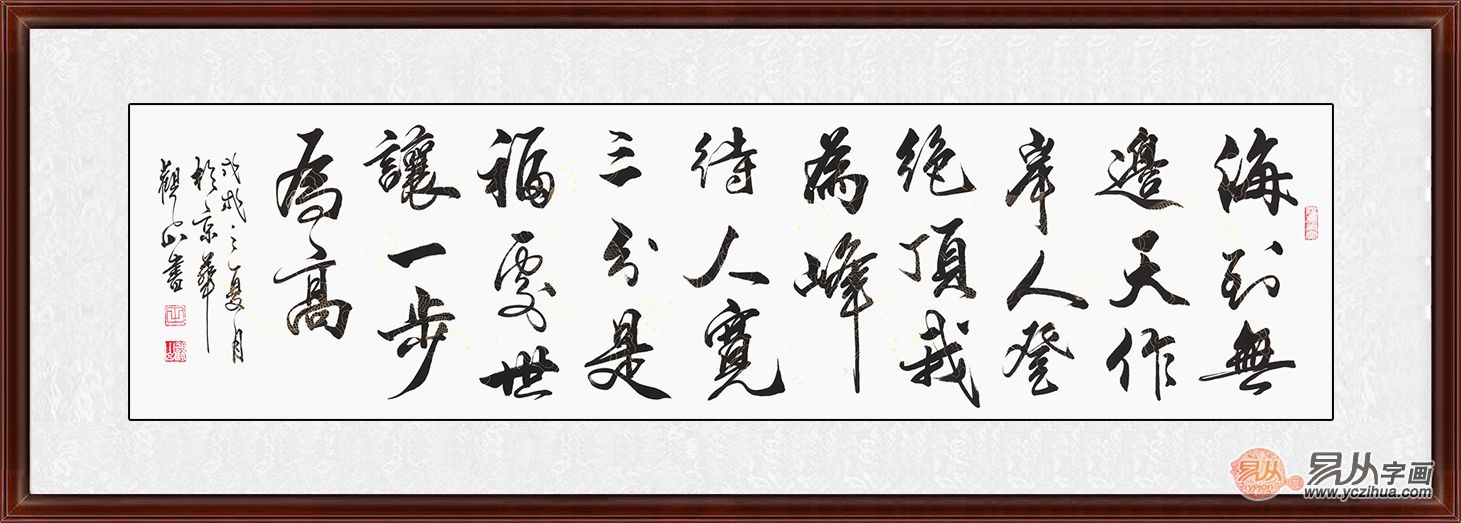 海到無
邊天作
岸人登
絶頂我
為峰
待人寬
三分是
福處世
讓一步
為高
戊戌之夏月
於京華
觀山書
易从
易从字画
www.yczihua.com